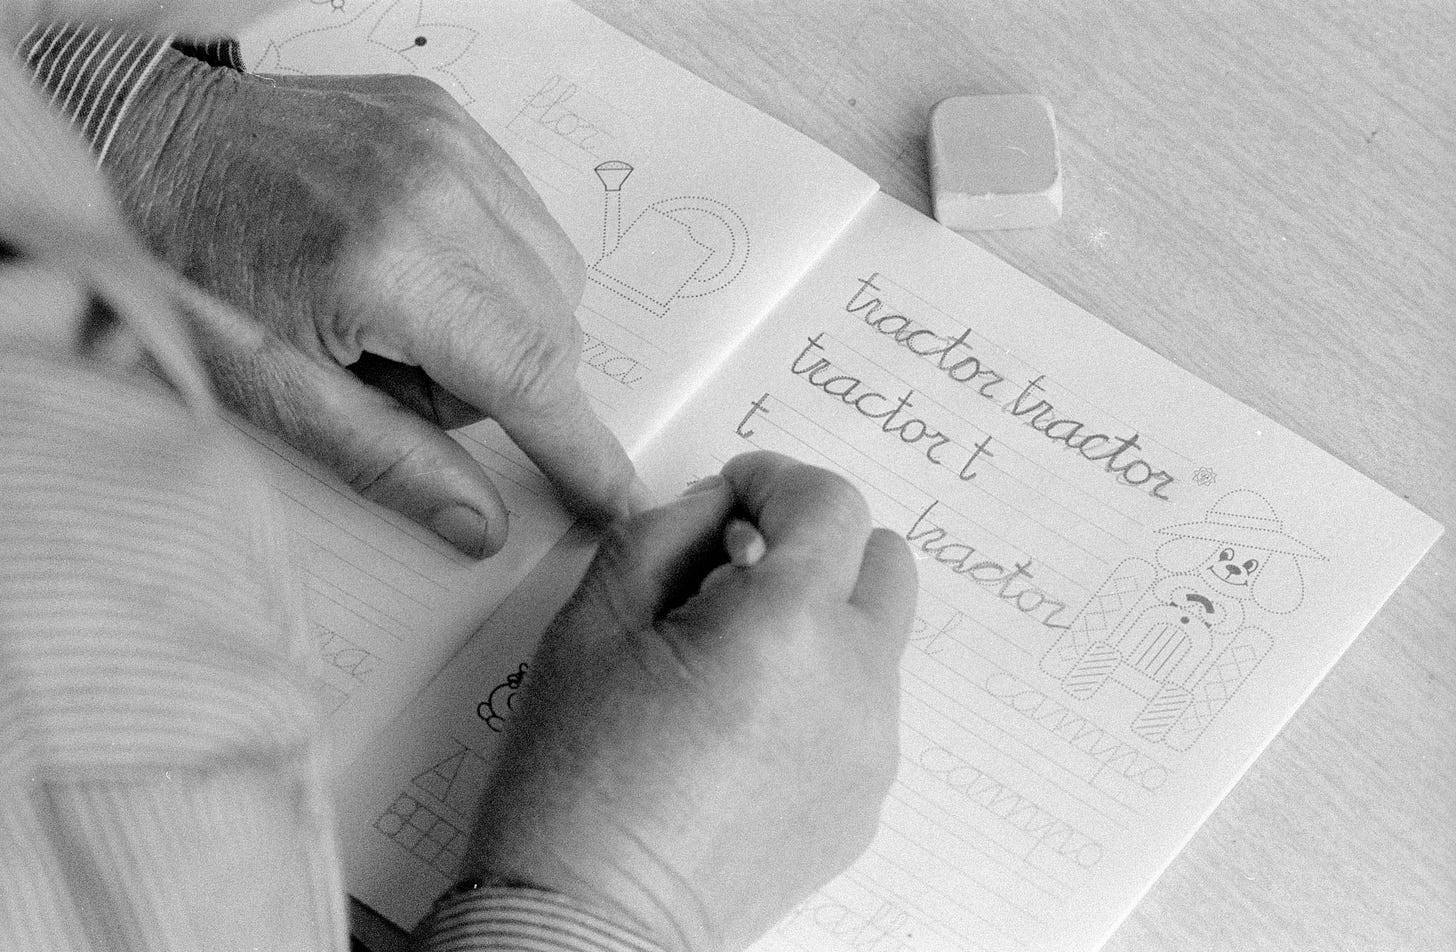 flor
tractor tractor
tractor t
t
tractor
el campo
campo